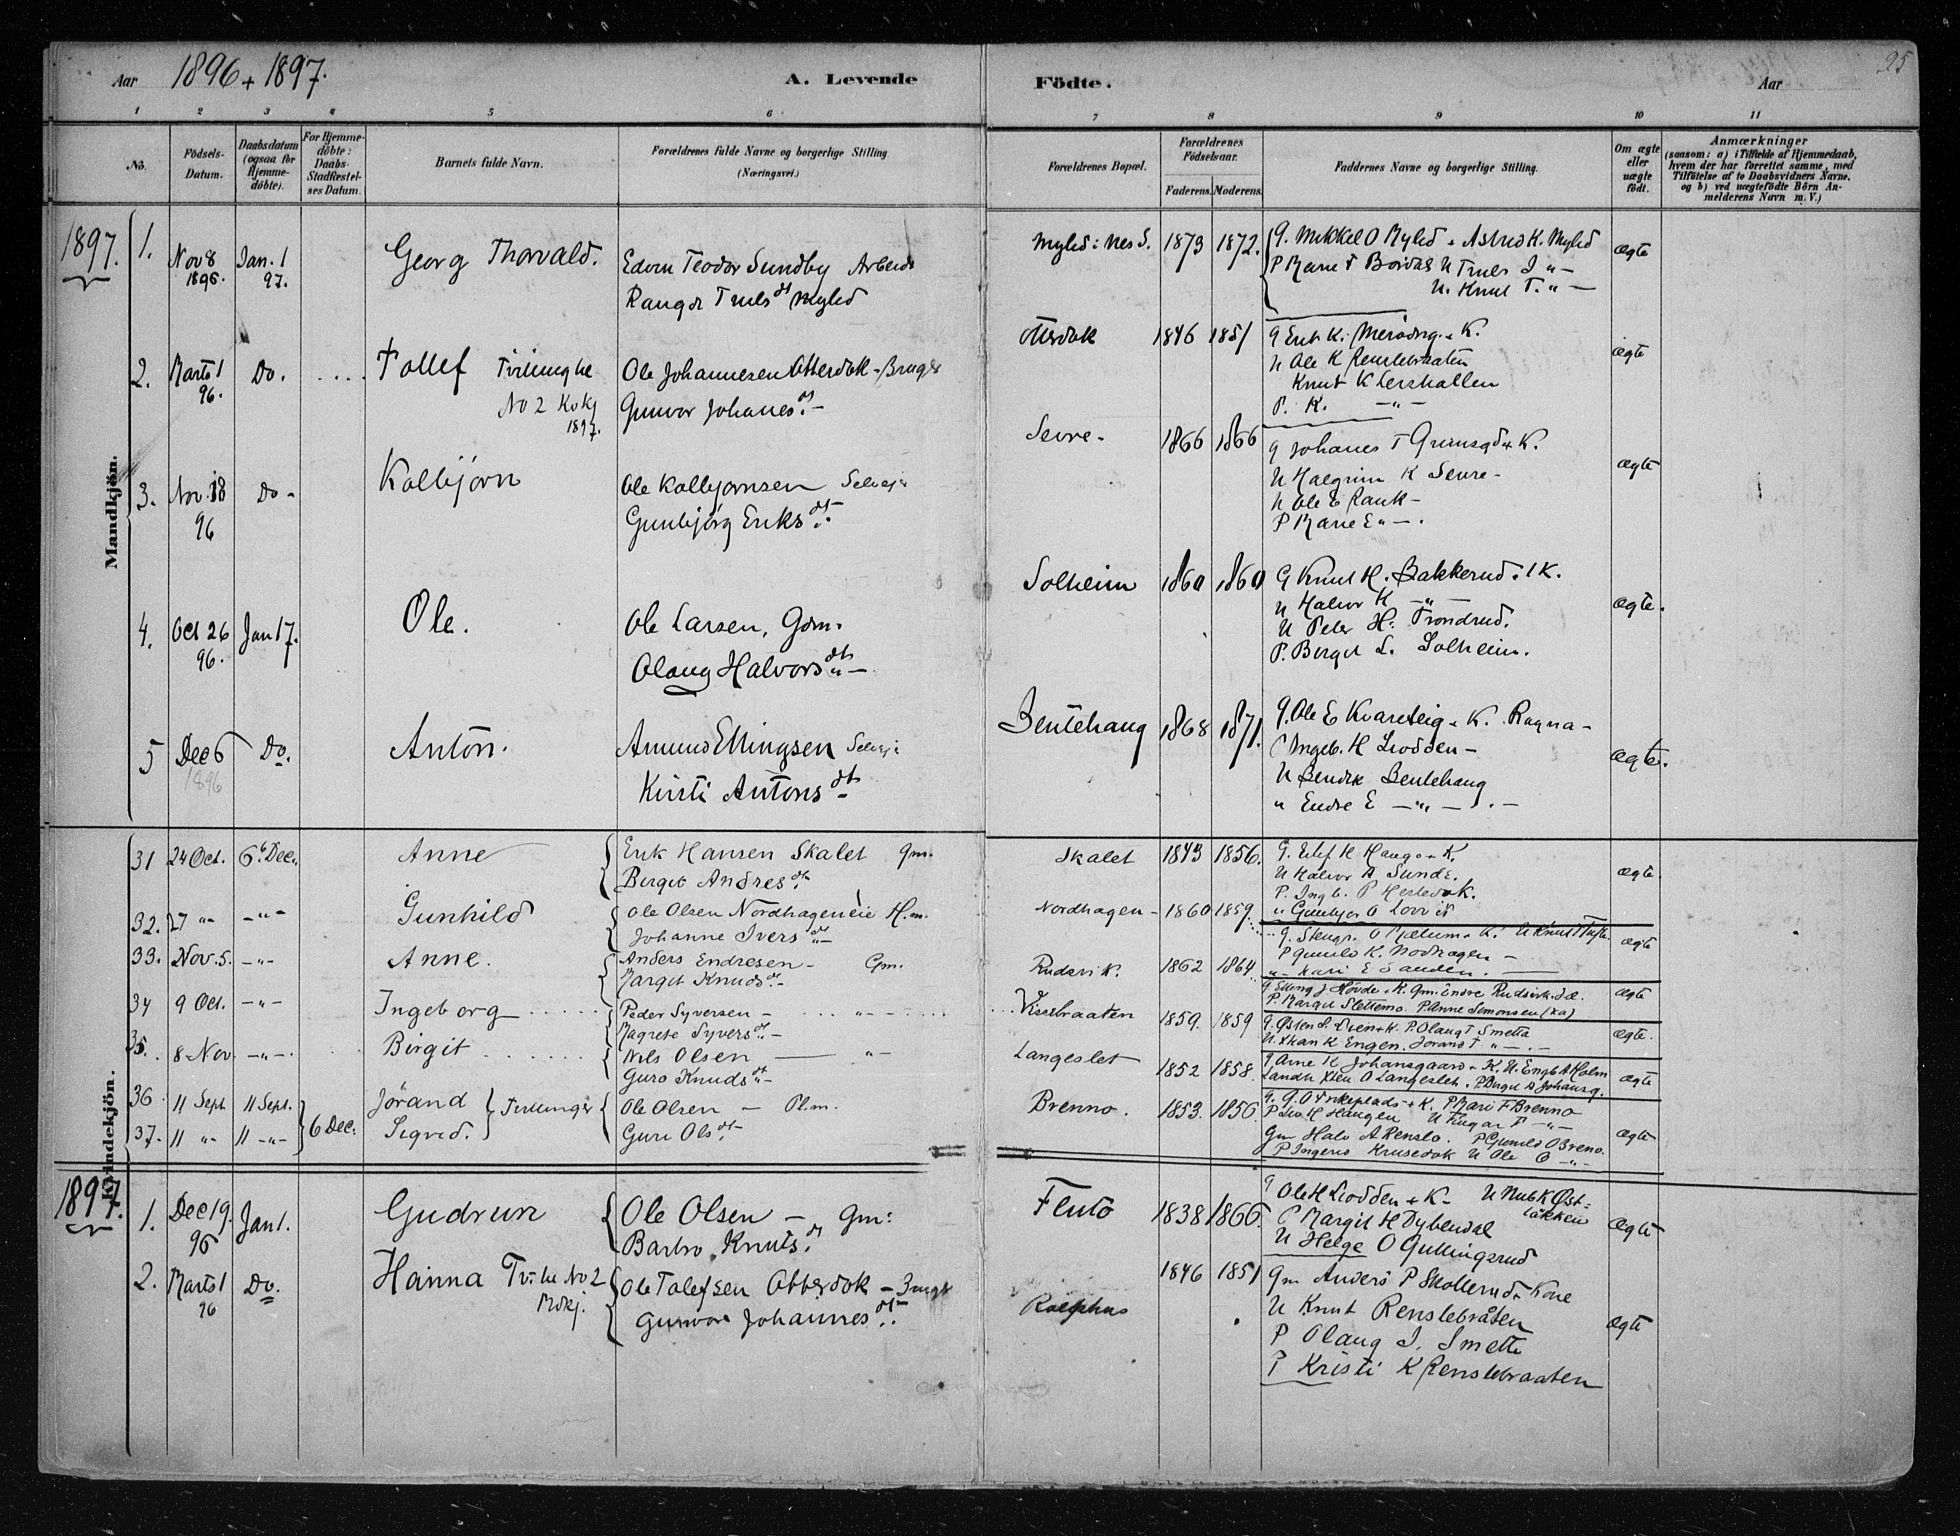 Aar 1896 + 1897.
A. Levende Födte.
Aar
25
1 2 3 4 5 6 7 8 9 10 11
No.
Födsels-Datum.
Daabsdatum (ogsaa for Hjemmedöbte).
For Hjemmedöbte: Daabs-Stadfæstelses Datum.
Barnets fulde Navn.
Forældrenes fulde Navne og borgerlige Stilling
(Næringsvei.)
Forældrenes Bopæl.
Forældrenes Födselsaar.
Faderens. Moderens.
Faddernes Navne og borgerlige Stilling.
Om ægte eller uægte födt.
Anmærkninger
(saasom: a) i Tilfælde af Hjemmedaab,
hvem der har forrettet samme, med
Tilföielse af to Daabsvidners Navne,
og b) ved uægtefödte Börn An-
melderens Navn m. V.)
Mandkjön.
1897.
1. Nov 8 1896. Jan. 1 97. Georg Thorvald.
Edvin Teodor Sundby Arbeid
Rangdi Truls dt Myled
Myled i Nes S. 1873 1872.
G. Mikkel O Myled + Astrid K. Myled
P Marie T Bordal U Truls J "-
U. Knut T. "-
ægte
2. Marts 1 96. Do. Tollef Tvilling he
No 2 Kvkj
1897.
Ole Johannesen Otterdok - Bruger
Gunvor Johanes dt. -
Otterdok 1846 1851
G Erik K.
U Ole K Renslebraaten
Knut K
P. K. -"-
ægte
3. Nov. 18 96 Do - Kolbjörn
Ole Kolbjørnsen Selvej
Gunbjörg Eriks dt.
Sevre - 1866 1866
G Johanes T Grimsgd + K.
U Halgrim K Sevre -
U Ole E Rauk -
P Marie E "-.
ægte
4. Oct 26 96. Jan 17. Ole.
Ole Larsen, Gdm.
Olaug Halvors dt "-
Solheim 1860 1860
G Knut H. Bakkerud. + K.
U Halvor K -"-
U Peler H. Trondrud.
P. Berget L. Solheim.
ægte.
5 Dec 6 1896 Do. Anton.
Amund Ellingsen Selvej
Kirsti Antons dt
Bentehaug 1868 1871.
G. Ole E Kvarteig + K. Ragna -
P Ingeb. H Lrodden -
U Bendik Bentehaug
" Endre E -"-.-
ægte.
Kvindekjön.
31 24 Oct. 6te Dec. Anne
Erik Hansen Skalet Gm.
Birgit Andres dt.
Skalet 1843 1856.
G. Eilef H Haugo + K.
U Halvor A Sunde.
P. Ingb. P Hesledok.
" Gunbjor O
ægte.
32. 27 " -"- Gunhild
Ole Olsen Nordhageneie H.m.
Johanne Ivers dt "-
Nordhagen - 1860 1859.
P Gunild K. Nordhagen -
"- Kari E Sanden. -
ægte
33. Nov. 5. -"- Anne.
Anders Endresen - Gm.
Margit Knuds dt. -
Rudsvik. 1862 1864
G Elling J Hovde + K. Gm. Endre Rudsvik.
P. Margit Slettemo P. Anne Simonsen
ægte
34 9 Oct. -"- Ingeborg
Peder Syversen - -"-
Magrete Syvers dt. -
Vissebraaten 1859. 1859
G. Østen S. Lien + K. P. Olaug T Smette
U. Stian K Engen. Jorand T "-
ægte.
35. 8 Nov. -"- Birgit
Nils Olsen - "-
Guro Knuds dt "-
Langeslet 1852 1858.
G. Arne K Johansgaard + K. U. Engb. A Holm
Landh. Sten O Langeslet. P. Birgit A Johansg.
ægte
36 11 Sept. 11 Sept. Jörand
37. 11 " 11 -"- 6 Dec. Sigrid. Tvillinger
Ole Olsen - Pl.m.
Guri Ols dt. -
Brenno. 1853. 1856
+ K. P Mari F Brenno
P Liv H Haugen U Ragnar F -"-
Gm Halv A Renslo. P Gunild O Breno.
P Ingerid Krusedok U Ole O -"-
ægte
1897.
1. Dec 19. 96 Jan 1. Gudrun
Ole Olsen - Gm:
Barbro Knuts dt
Fluto 1838 1866.
G Ole H Lrodden + K - U Nub K Øst-
låkken
P Margit H Dybendal
U Helge O Gullingsrud
ægte
2. Marts 1 96 Do. Hanna Tv. he No 2
Mdkj.
Ole Tolefsen Otterdok - Brugr
Gunvor Johannes dt.
Roephus 1846 1851
Gm Anders P Skollerud + Kone
U Knut Renslebråten
P Olaug J. Smette
P Kristi K Renslebraaten
ægte